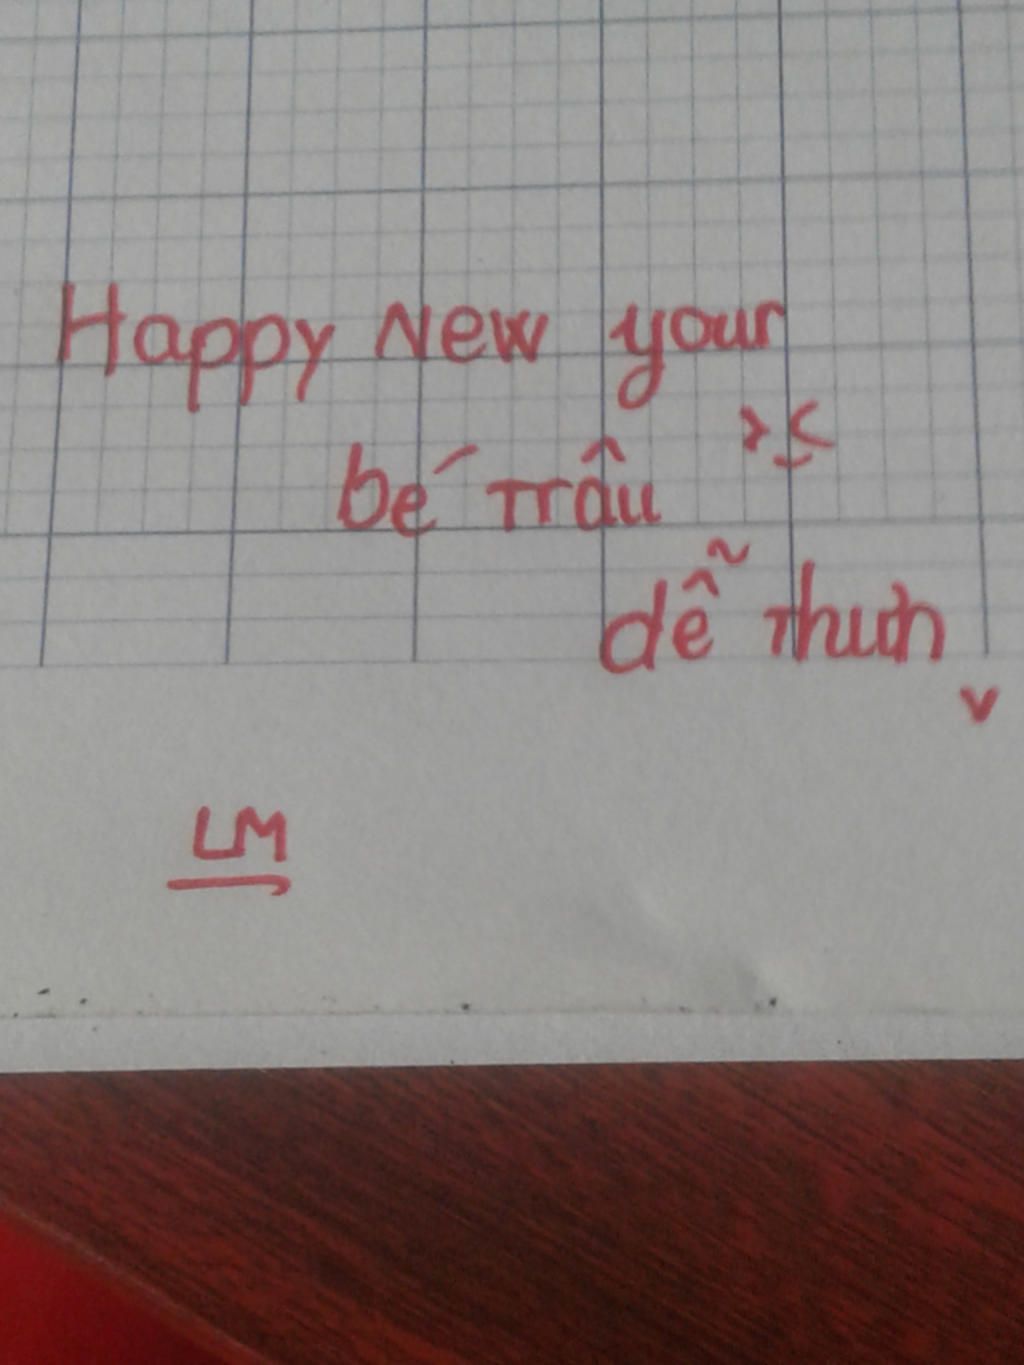 Happy New your
bé Trâu ><
dễ Thưn
v
LM